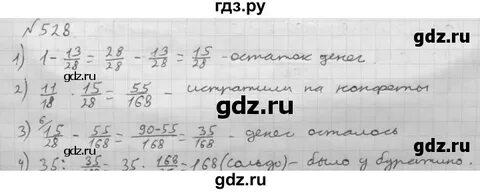 гдз.ру
№528
1) 1 - 13/28 = 28/28 - 13/28 = 15/28 - остаток денег.
2) 11/18 · 15/28 = 55/168 - истратили на конфеты
3) 6/ 15/28 - 55/168 = 90-55/168 = 35/168 - денег осталось
4) 35 : 35/168 = 35 · 168/35 = 168 (сольдо) - было у буратино.
gdz.ru gdz.ru gdz.ru
gdz.ru gdz.ru gdz.ru